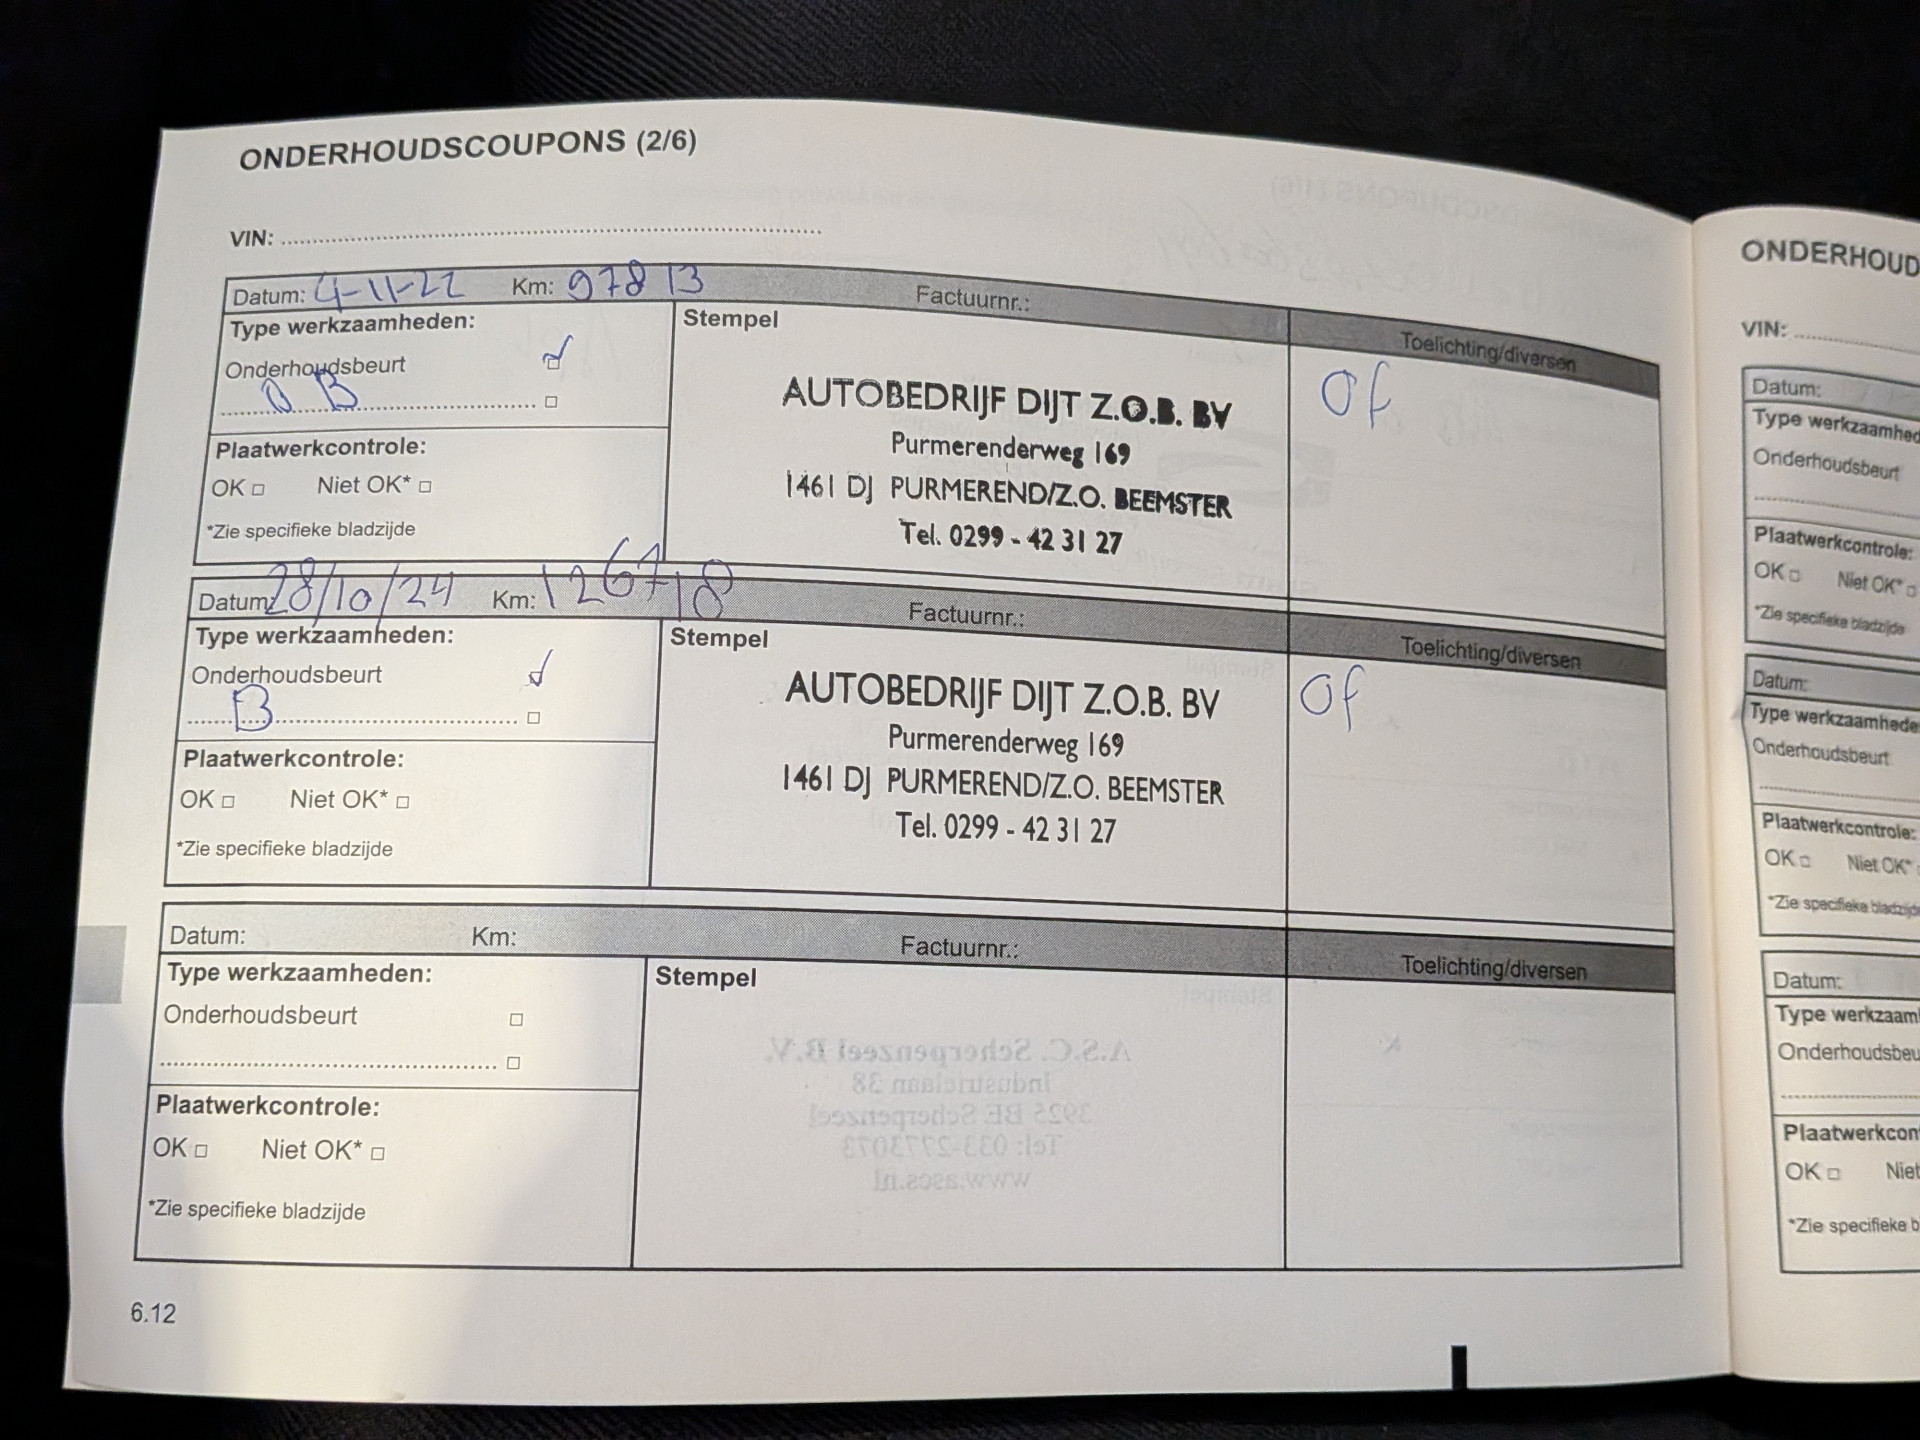 ONDERHOUDSCOUPONS (2/6)
VIN:
Datum: 4-11-22 Km: 97813 Factuurnr.:
Type werkzaamheden:
Onderhoudsbeurt
B
Plaatwerkcontrole:
OK □ Niet OK* □
*Zie specifieke bladzijde
Stempel
AUTOBEDRIJF DIJT Z.O.B. BV
Purmerenderweg 169
1461 DJ PURMEREND/Z.O. BEEMSTER
Tel. 0299 - 42 31 27
Toelichting/diversen
Of
Datum: 28/10/24 Km: 126718 Factuurnr.:
Type werkzaamheden:
Onderhoudsbeurt
B
Plaatwerkcontrole:
OK □ Niet OK* □
*Zie specifieke bladzijde
Stempel
AUTOBEDRIJF DIJT Z.O.B. BV
Purmerenderweg 169
1461 DJ PURMEREND/Z.O. BEEMSTER
Tel. 0299 - 42 31 27
Toelichting/diversen
Of
Datum: Km: Factuurnr.:
Type werkzaamheden:
Onderhoudsbeurt □
□
Plaatwerkcontrole:
OK □ Niet OK* □
*Zie specifieke bladzijde
Stempel
A.S.C. Scherpenzeel B.V.
Industrielaan 38
3925 BE Scherpenzeel
Tel: 033-2773073
www.ascs.nl
Toelichting/diversen
6.12
ONDERHOUD
VIN:
Datum:
Type werkzaamhed
Onderhoudsbeurt
Plaatwerkcontrole:
OK □ Niet OK* □
*Zie specifieke bladzijde
Datum:
Type werkzaamhede
Onderhoudsbeurt
Plaatwerkcontrole:
OK □ Niet OK*
*Zie specifieke bladzijde
Datum:
Type werkzaam
Onderhoudsbeu
Plaatwerkcon
OK □ Niet
*Zie specifieke b